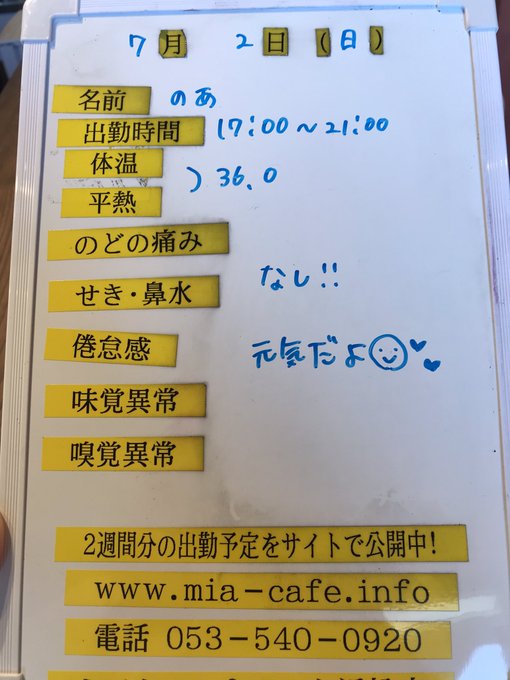 7月 2日(日)
名前 のあ
出勤時間 17:00~21:00
体温
) 36.0
平熱
のどの痛み
せき・鼻水
なし!!
倦怠感
元気だよ
味覚異常
嗅覚異常
2週間分の出勤予定をサイトで公開中!
www.mia-cafe.info
電話 053-540-0920